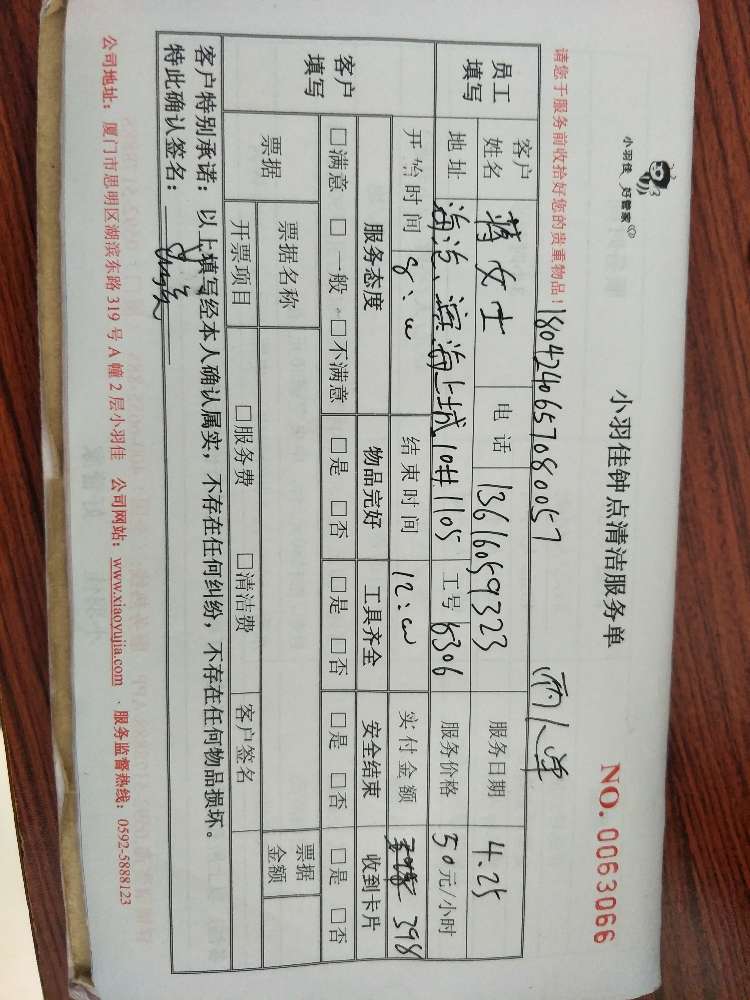 小羽佳 好管家
小羽佳钟点清洁服务单
NO. 0063066
请您于服务前收拾好您的贵重物品！
1804240657080057
两人单
员工填写
客户姓名 蒋女士 电话 13616059323 服务日期 4.25
地址 海沧、滨海上城10#1105 工号 6306 服务价格 50元/小时
开始时间 8:00 结束时间 12:00 实付金额 398
客户填写
服务态度 物品完好 工具齐全 安全结束 收到卡片
□满意 □一般 □不满意 □是 □否 □是 □否 □是 □否 □是 □否
票据 票据名称 票据金额
开票项目 □服务费 □清洁费 客户签名
客户特别承诺：以上填写经本人确认属实，不存在任何纠纷，不存在任何物品损坏。
特此确认签名：
公司地址：厦门市思明区湖滨东路 319 号 A 幢 2 层小羽佳 公司网站：www.xiaoyujia.com · 服务监督热线：0592-5888123